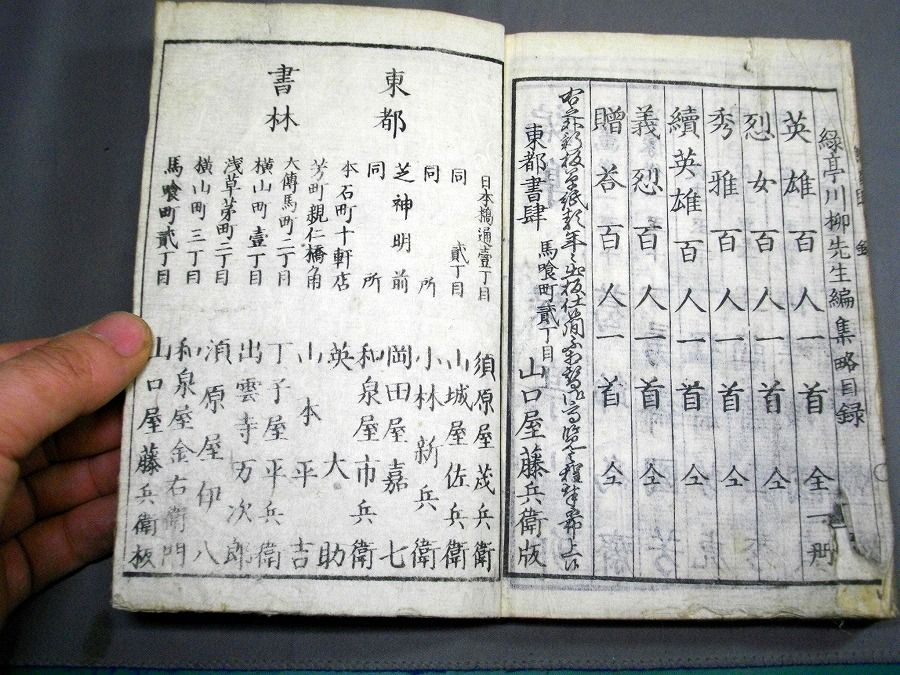 緑亭川柳先生編集略目録
英雄百人一首 全一冊
烈女百人一首 仝
秀雅百人一首 仝
續英雄百人一首 仝
義烈百人一首 仝
贈荅百人一首 仝
東都書肆 馬喰町貳丁目 山口屋藤兵衛版
東都
書林
日本橋通壹丁目 須原屋茂兵衛
同 貳丁目 山城屋佐兵衛
同 所 小林新兵衛
芝神明前 岡田屋嘉七
同 所 和泉屋市兵衛
本石町十軒店 英大助
芳町親仁橋角 山本平吉
大傳馬町二丁目 丁子屋平兵衛
横山町壹丁目 出雲寺万次郎
浅草茅町二丁目 須原屋伊八
横山町三丁目 和泉屋金右衛門
馬喰町貳丁目 山口屋藤兵衛板